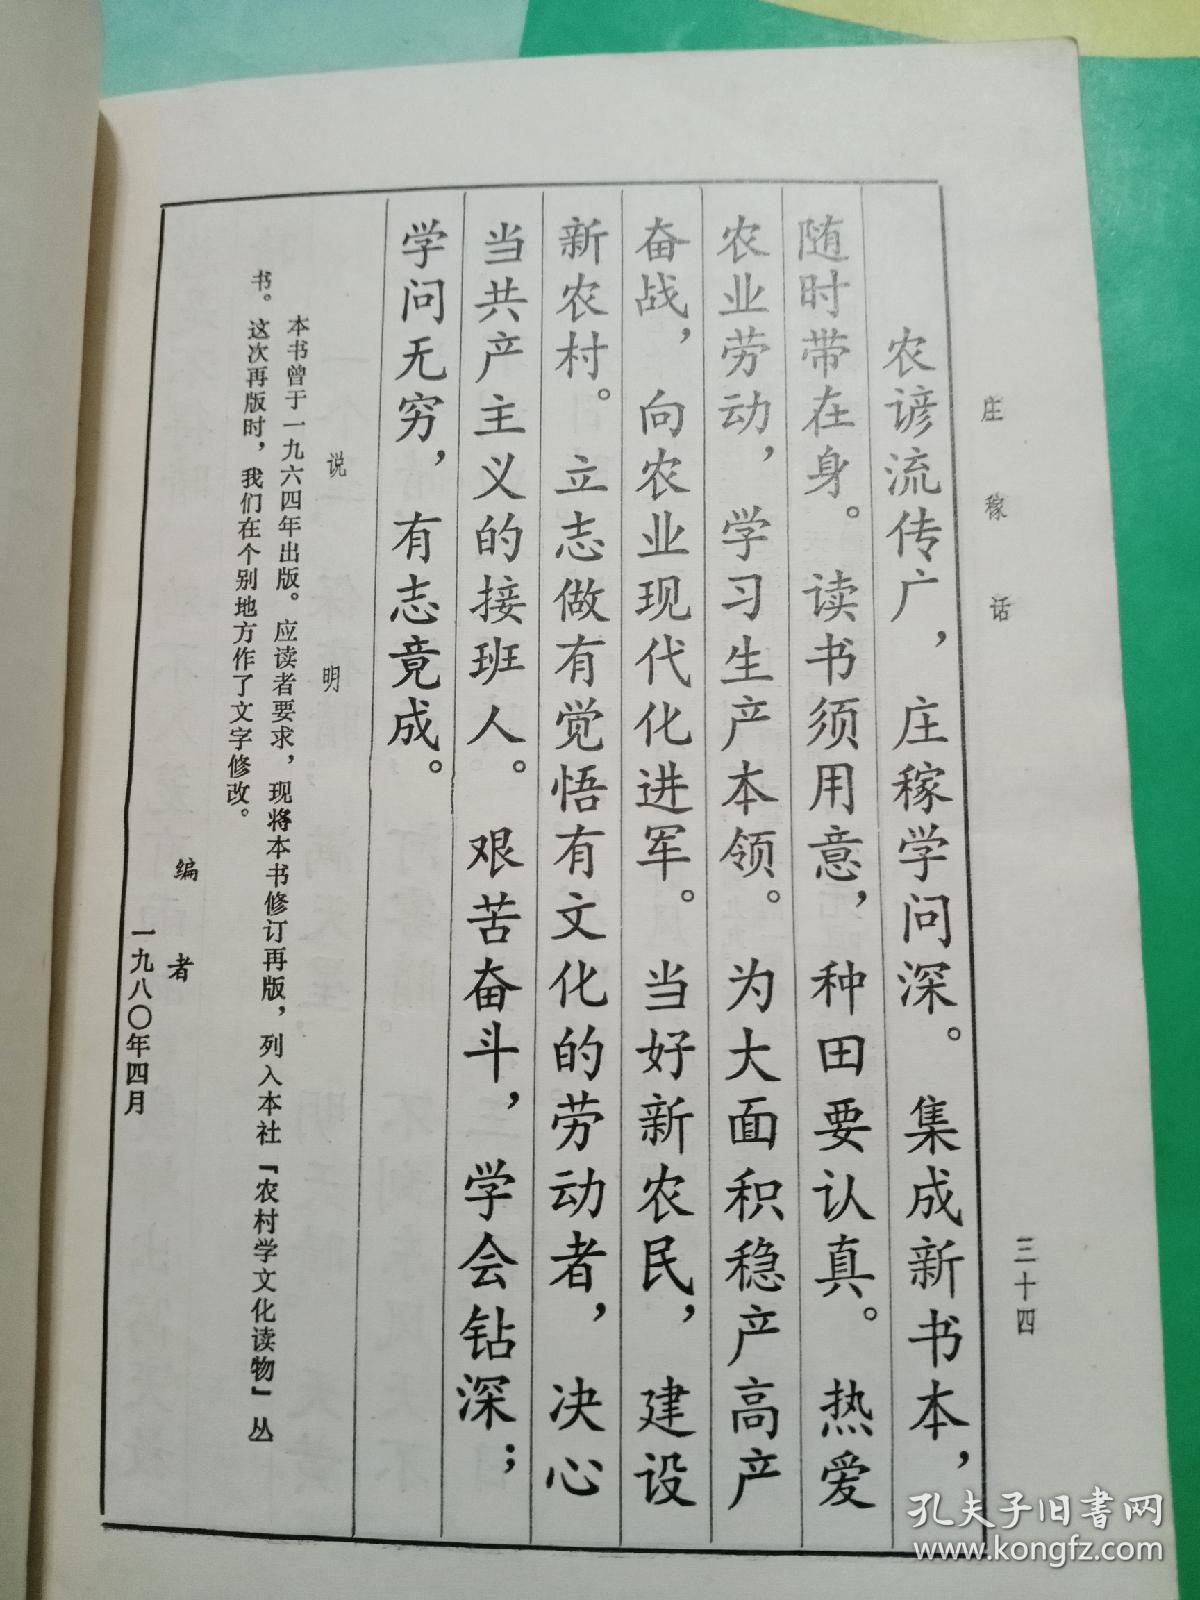 庄稼话
三十四
农谚流传广，庄稼学问深。集成新书本，
随时带在身。读书须用意，种田要认真。热爱
农业劳动，学习生产本领。为大面积稳产高产
奋战，向农业现代化进军。当好新农民，建设
新农村。立志做有觉悟有文化的劳动者，决心
当共产主义的接班人。艰苦奋斗，学会钻深；
学问无穷，有志竟成。
说明
本书曾于一九六四年出版。应读者要求，现将本书修订再版，列入本社「农村学文化读物」丛
书。这次再版时，我们在个别地方作了文字修改。
编者
一九八〇年四月
孔夫子旧书网
www.kongfz.com